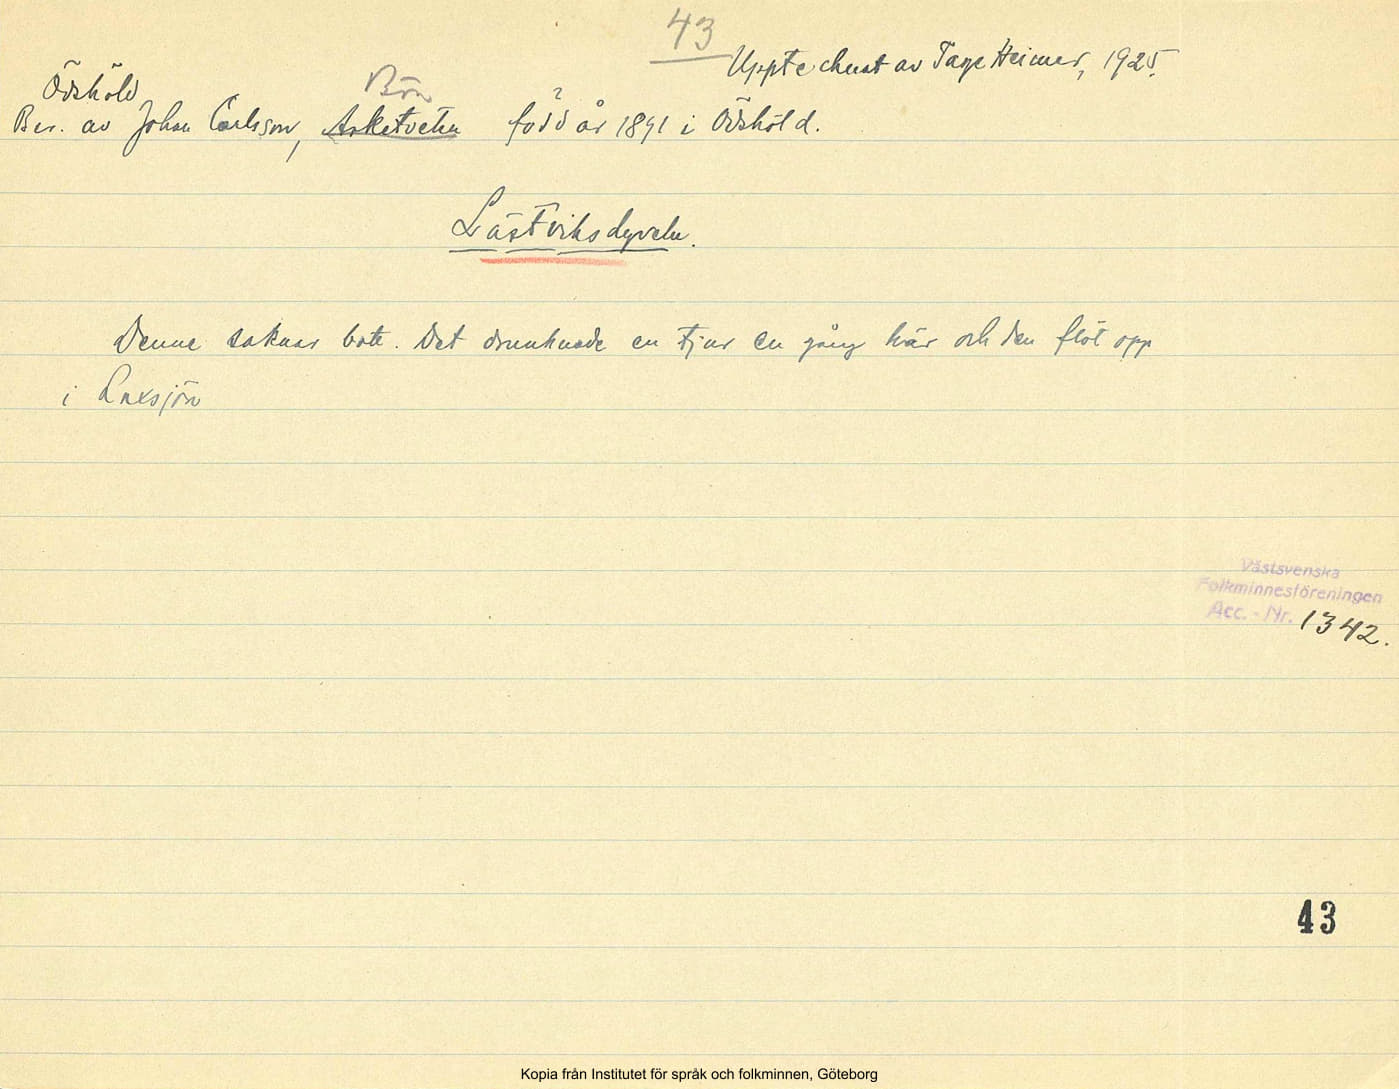 43
Upptecknat av Tage Heimer, 1925.
Ödsköld
Bön
Ber. av Johan Carlsson, Asketveten född år 1891 i Ödsköld.
?
Lästviksdyveln.
Denne saknar botn. Det drunknade en tjur en gång här och den flöt opp
i Laxsjön
Västsvenska
Folkminnesföreningen
Acc. - Nr. 1342.
43
Kopia från Institutet för språk och folkminnen, Göteborg